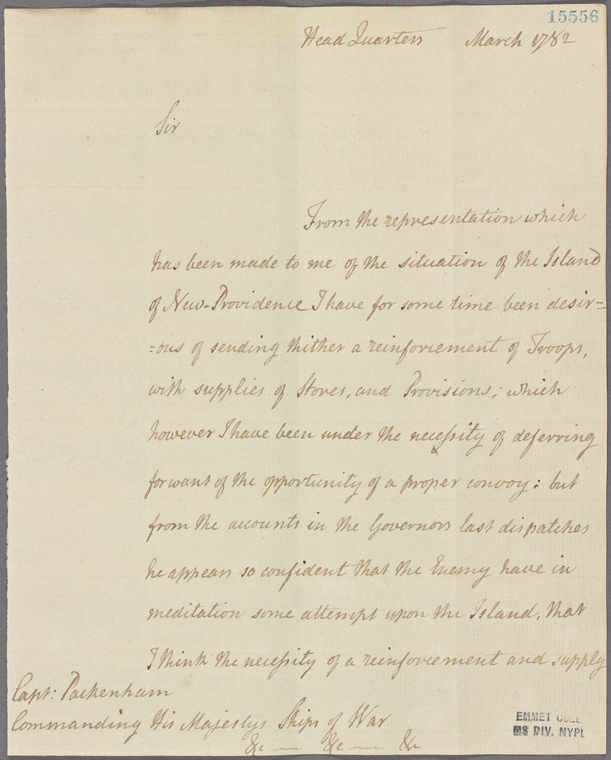 15556
Head Quarters March 1782
Sir
From the representation which
has been made to me of the situation of the Island
of New-Providence I have for some time been desir=
=ous of sending thither a reinforcement of Troops,
with supplies of Stores, and Provisions; which
however I have been under the necessity of deferring
for want of the opportunity of a proper convoy: but
from the accounts in the Governors last dispatches
he appears so confident that the Enemy have in
meditation some attempt upon the Island, that
I think the necessity of a reinforcement and supply
Capt: Packenham
Commanding His Majestys Ships of War
&c — &c — &c
EMMET COLL.
MS DIV. NYPL